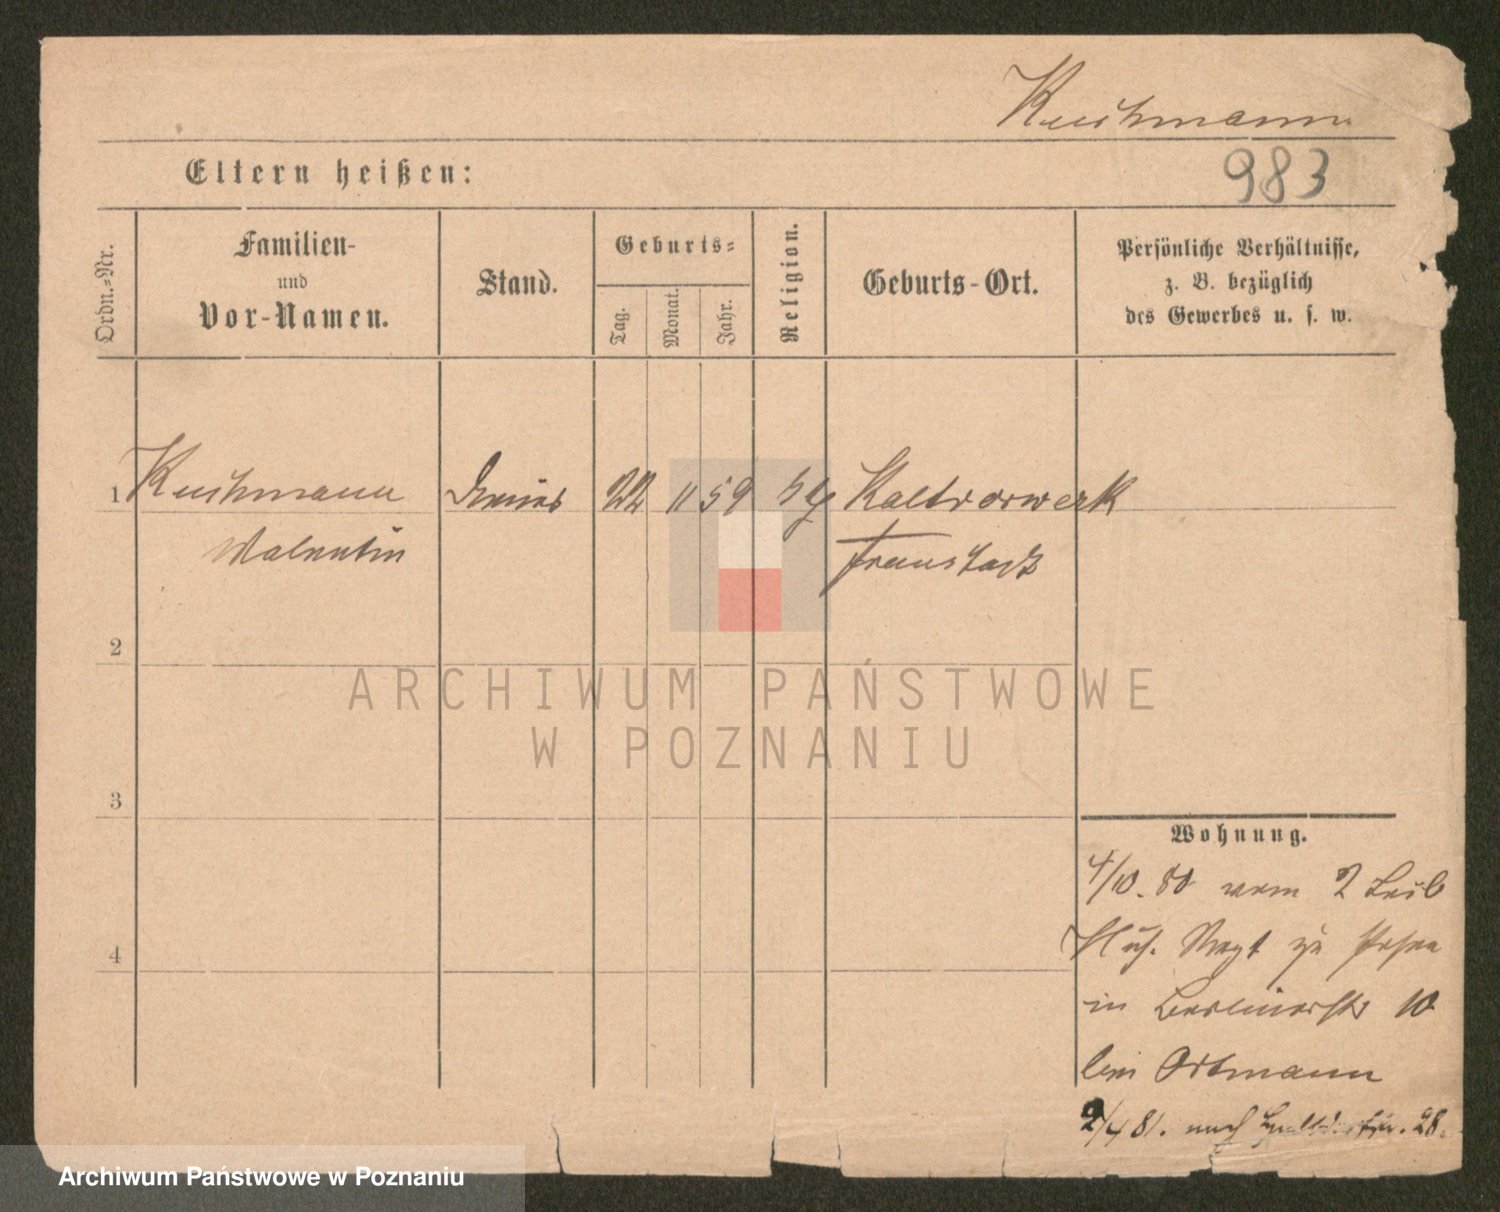 Kuschmann
Eltern heißen:
983
Ordn.-Nr.
Familien-
und
Vor-Namen.
Stand.
Geburts-
Tag.
Monat.
Jahr.
Religion.
Geburts-Ort.
Persönliche Verhältnisse,
z. B. bezüglich
des Gewerbes u. s. w.
1 Kuschmann 22 11 59 Kaltvorwerk
Valentin Fraustadt
2
ARCHIWUM PAŃSTWOWE
W POZNANIU
3
4
Wohnung.
4/10. 80 vom 2 Leib
Hus. Regt zu Posen
in Berlinerstr 10
bei Ortmann
2/4 81. nach 28.
Archiwum Państwowe w Poznaniu